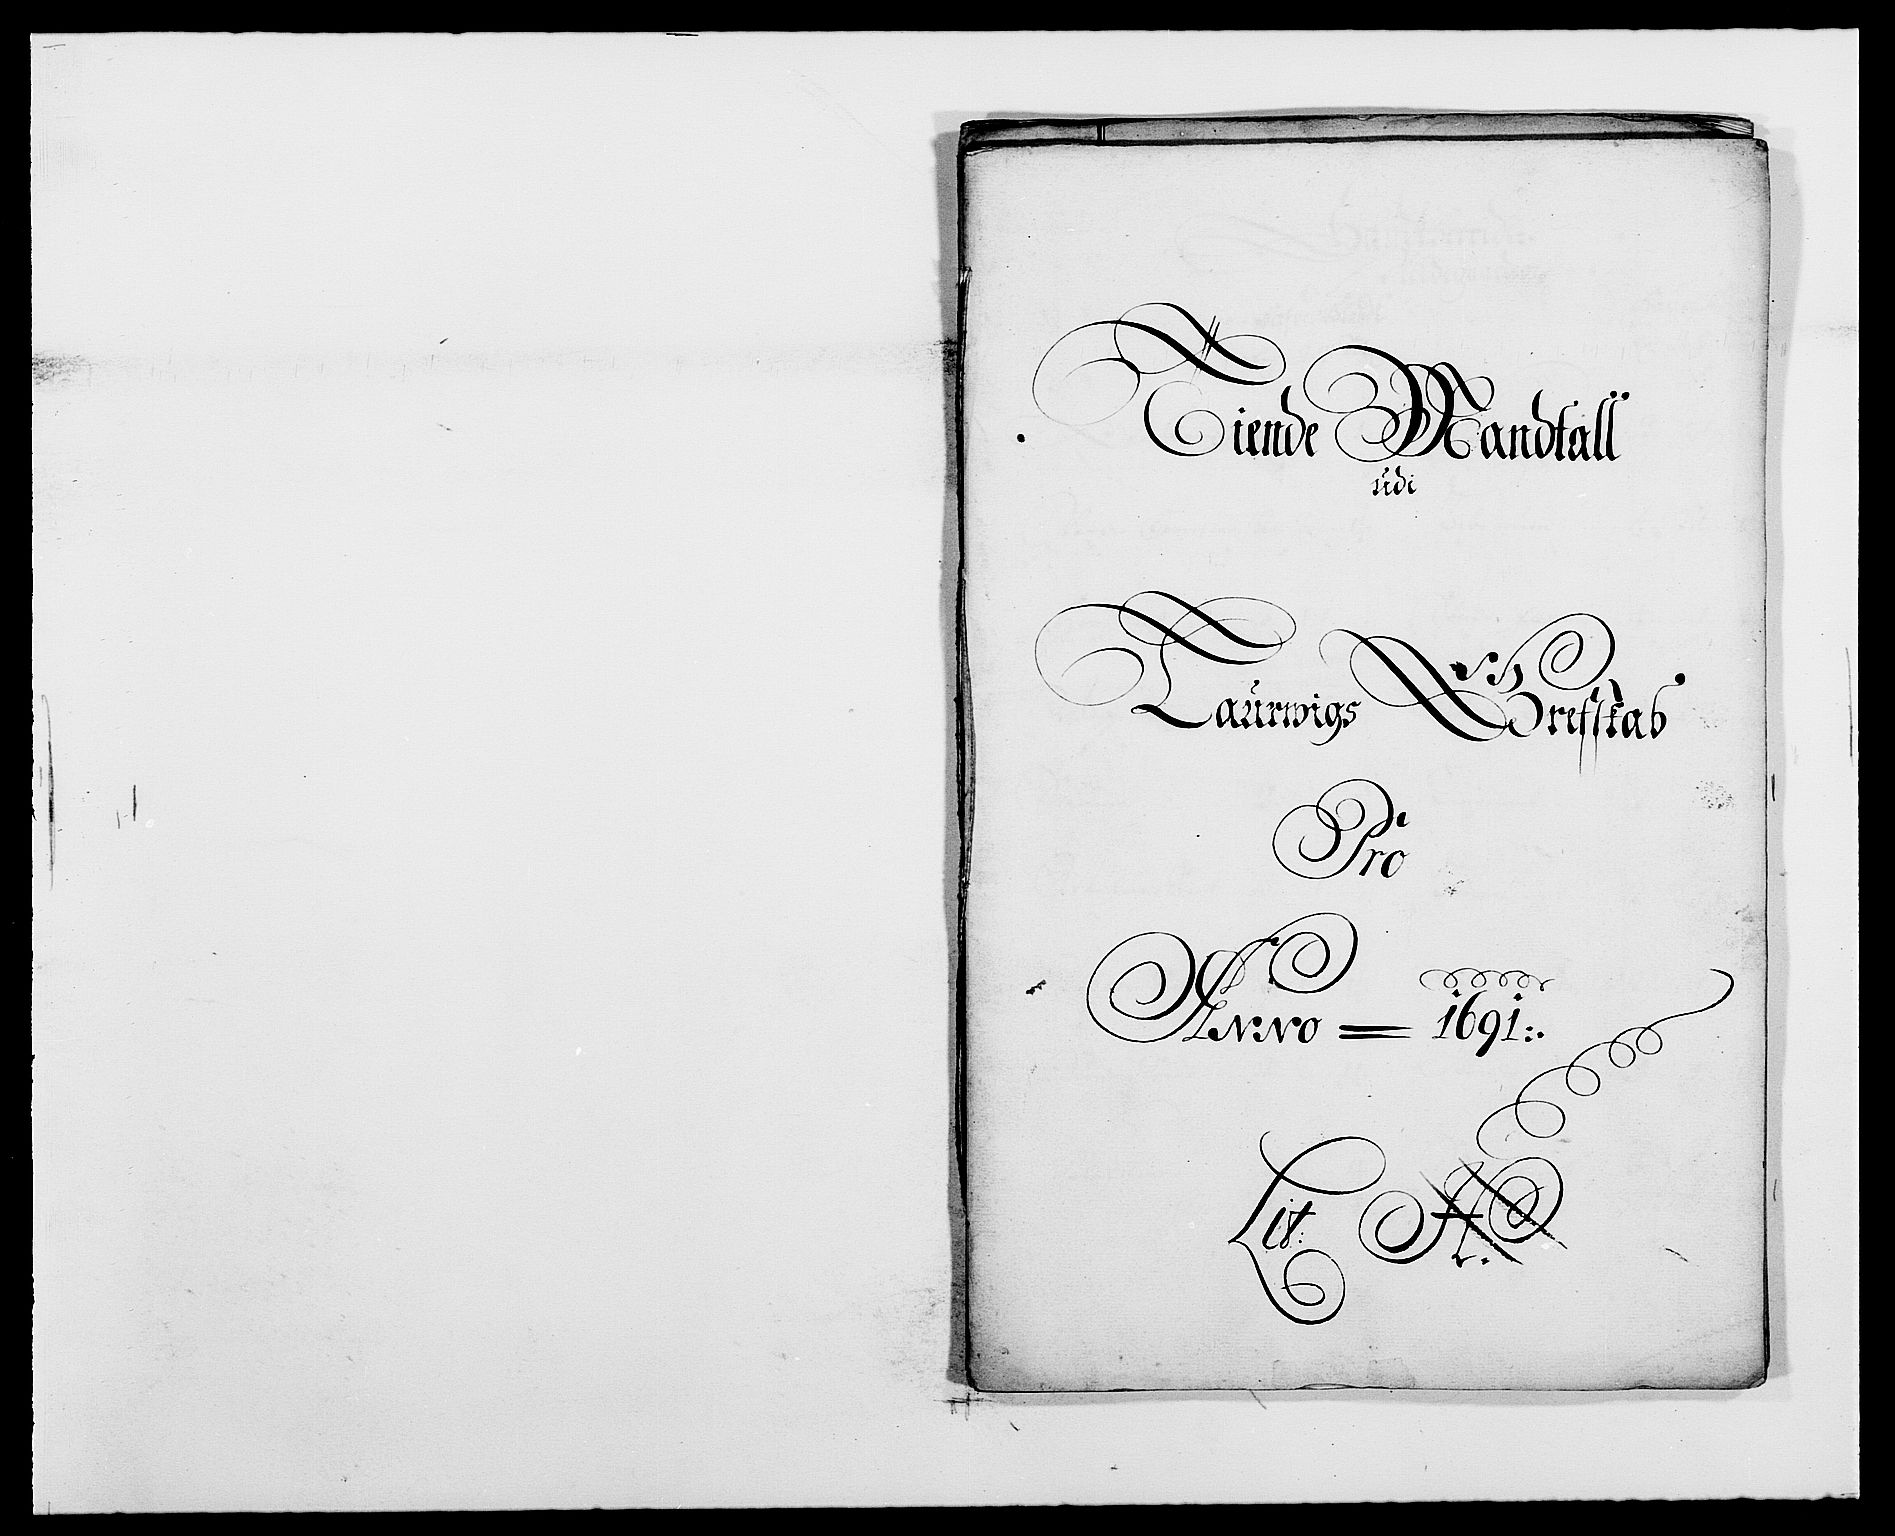 Tiende Mandtall
udi
Laurwigs Grefskab
Pro
Anno = 1691:.
Lit: A.